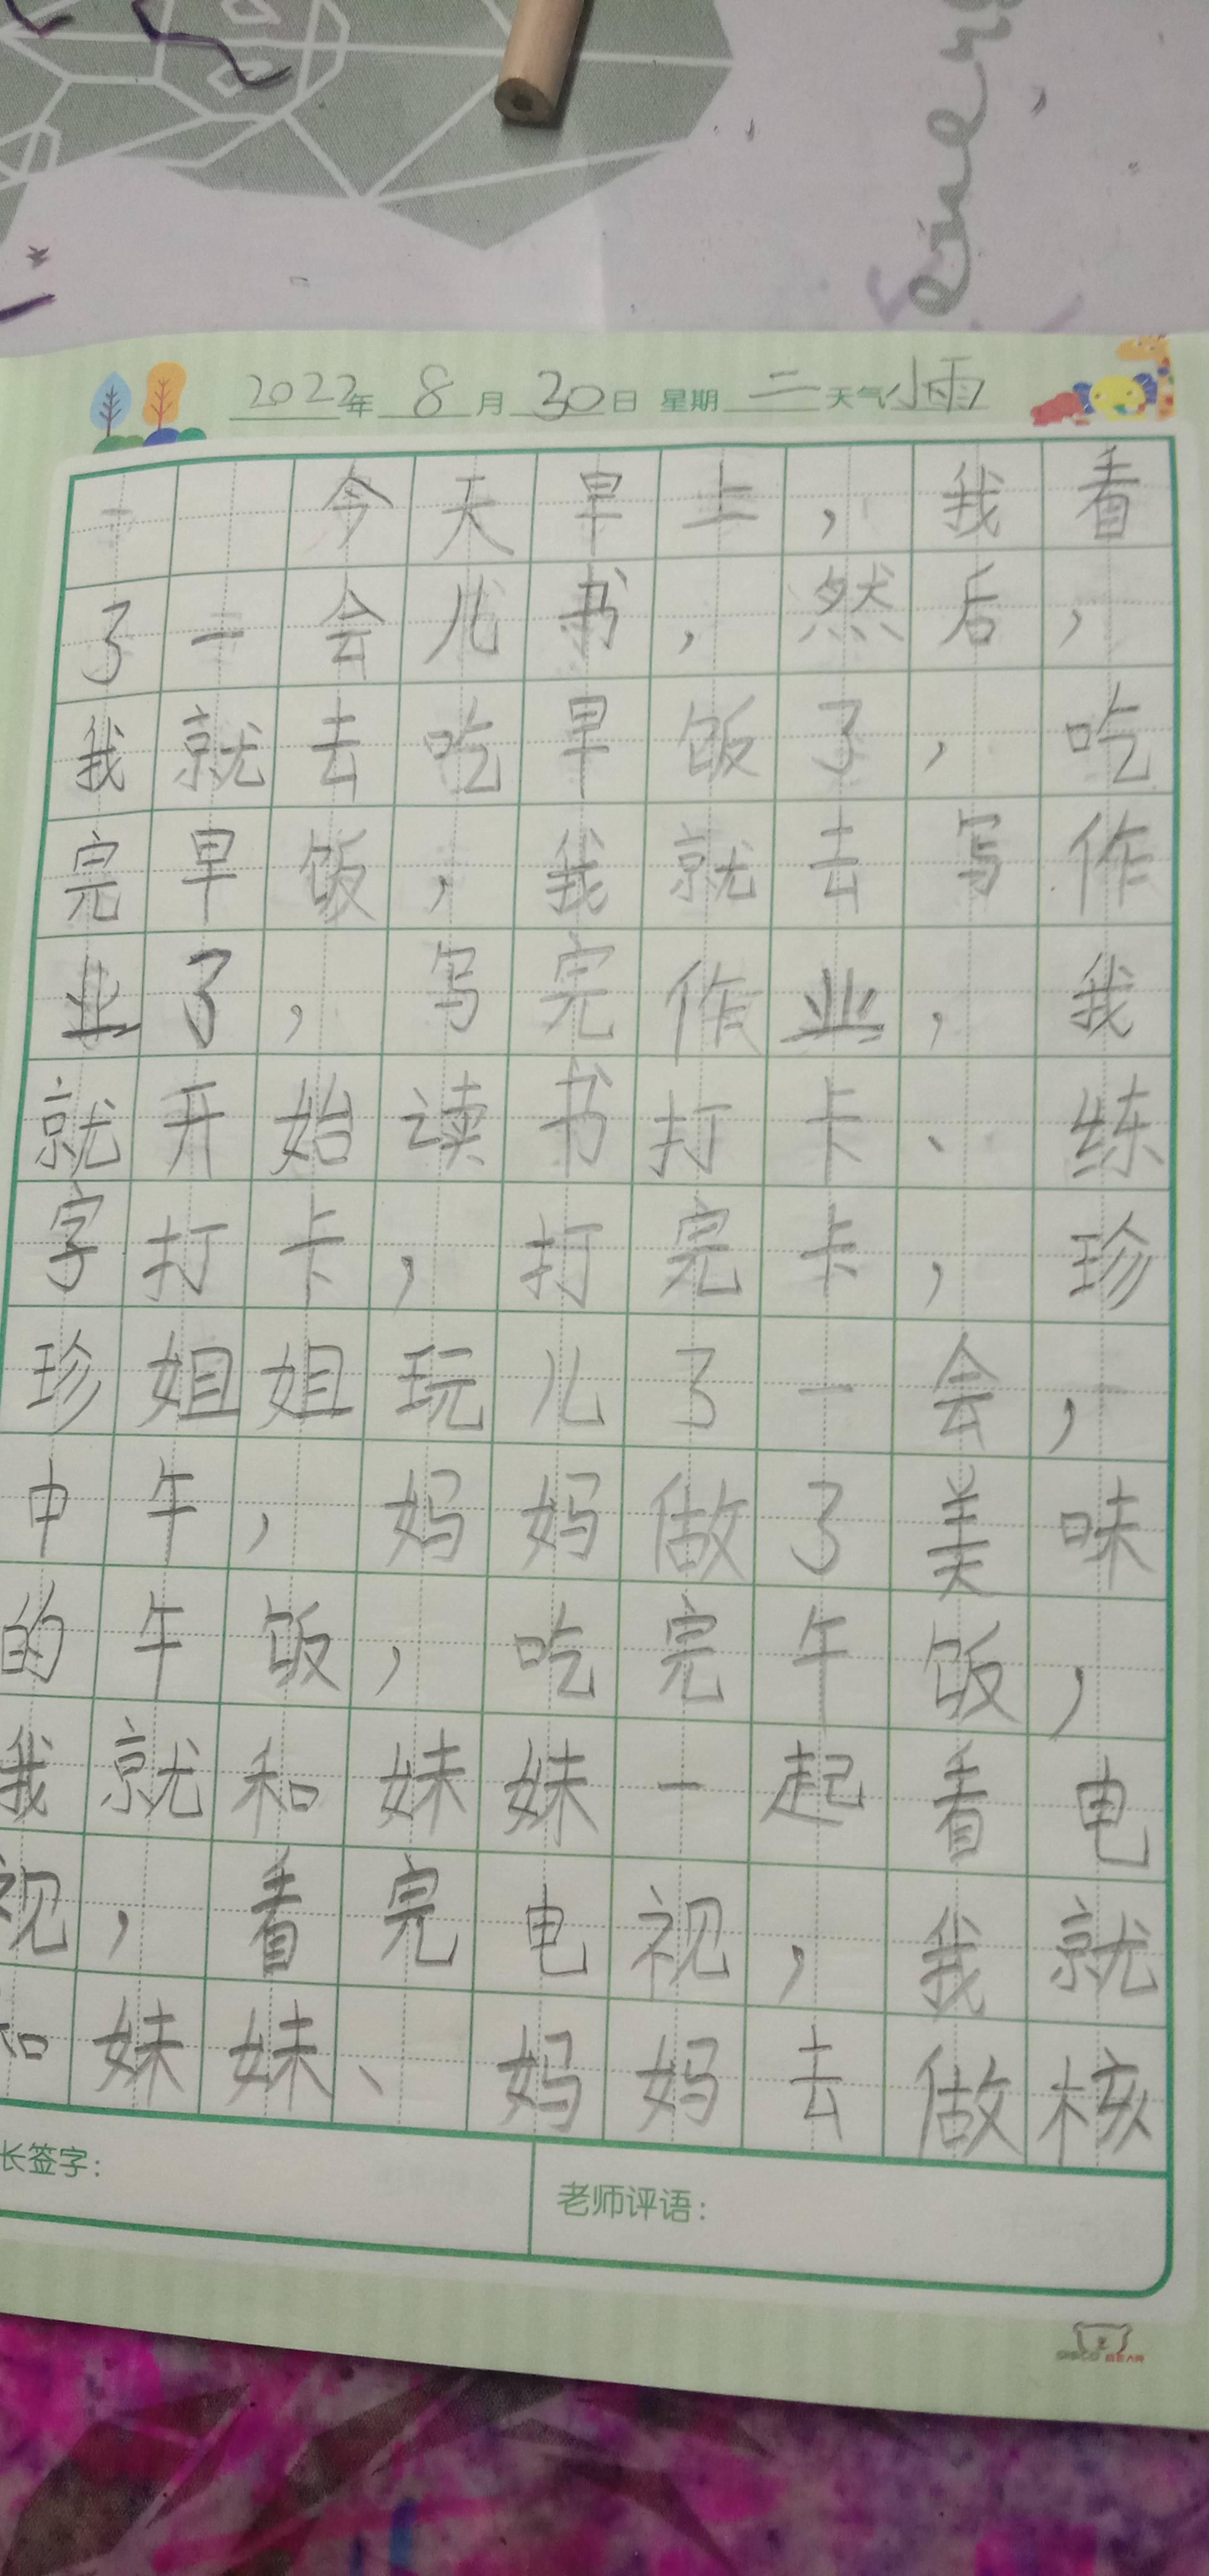 2022年 8月 30日 星期二 天气 小雨
今天早上，我看
了一会儿书，然后，
我就去吃早饭了，吃
完早饭，我就去写作
业了，写完作业，我
就开始读书打卡、练
字打卡，打完卡，珍
珍姐姐玩儿了一会，
中午，妈妈做了美味
的午饭，吃完午饭，
我就和妹妹一起看电
视，看完电视，我就
和妹妹、妈妈去做核
长签字：
老师评语：
BEAR